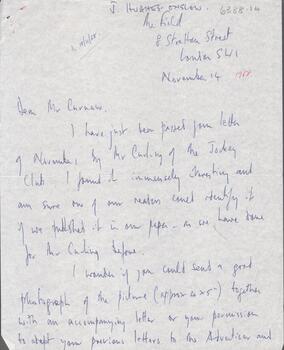 J. HUGHES-ONSLOW 6388.14
The Field
8 Stratton Street
London SW1
November 14
Dear Mr Curnow.
I have just been passed your letter
of November, by Mr Curling of the Jockey
Club. I found it immensely interesting and
am sure one of our readers could identify it
if we published it in our paper - as we have done
for Mr Curling before.
I wonder if you could send a good
photograph of the picture (approx 4x5") together
with an accompanying letter or your permission
to adapt your previous letters to the Advertiser and